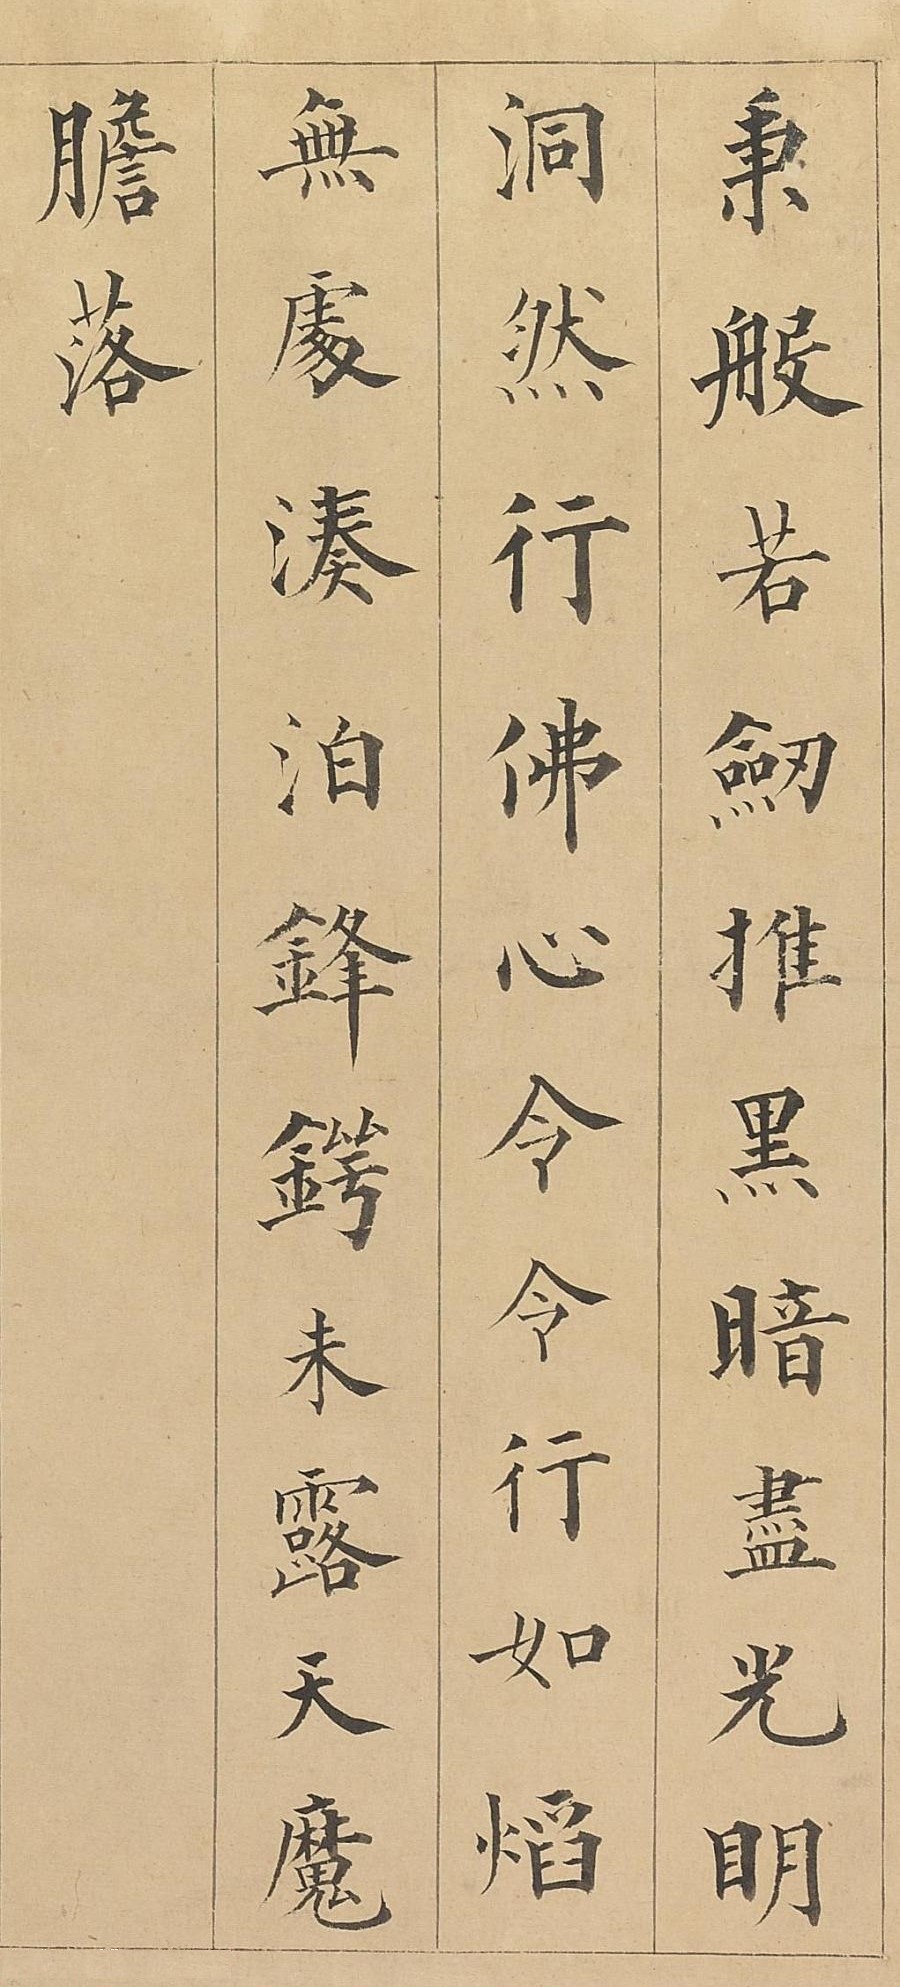 秉般若劒推黒暗盡光明
洞然行佛心令令行如熖
無處湊泊鋒鍔未露天魔
膽落